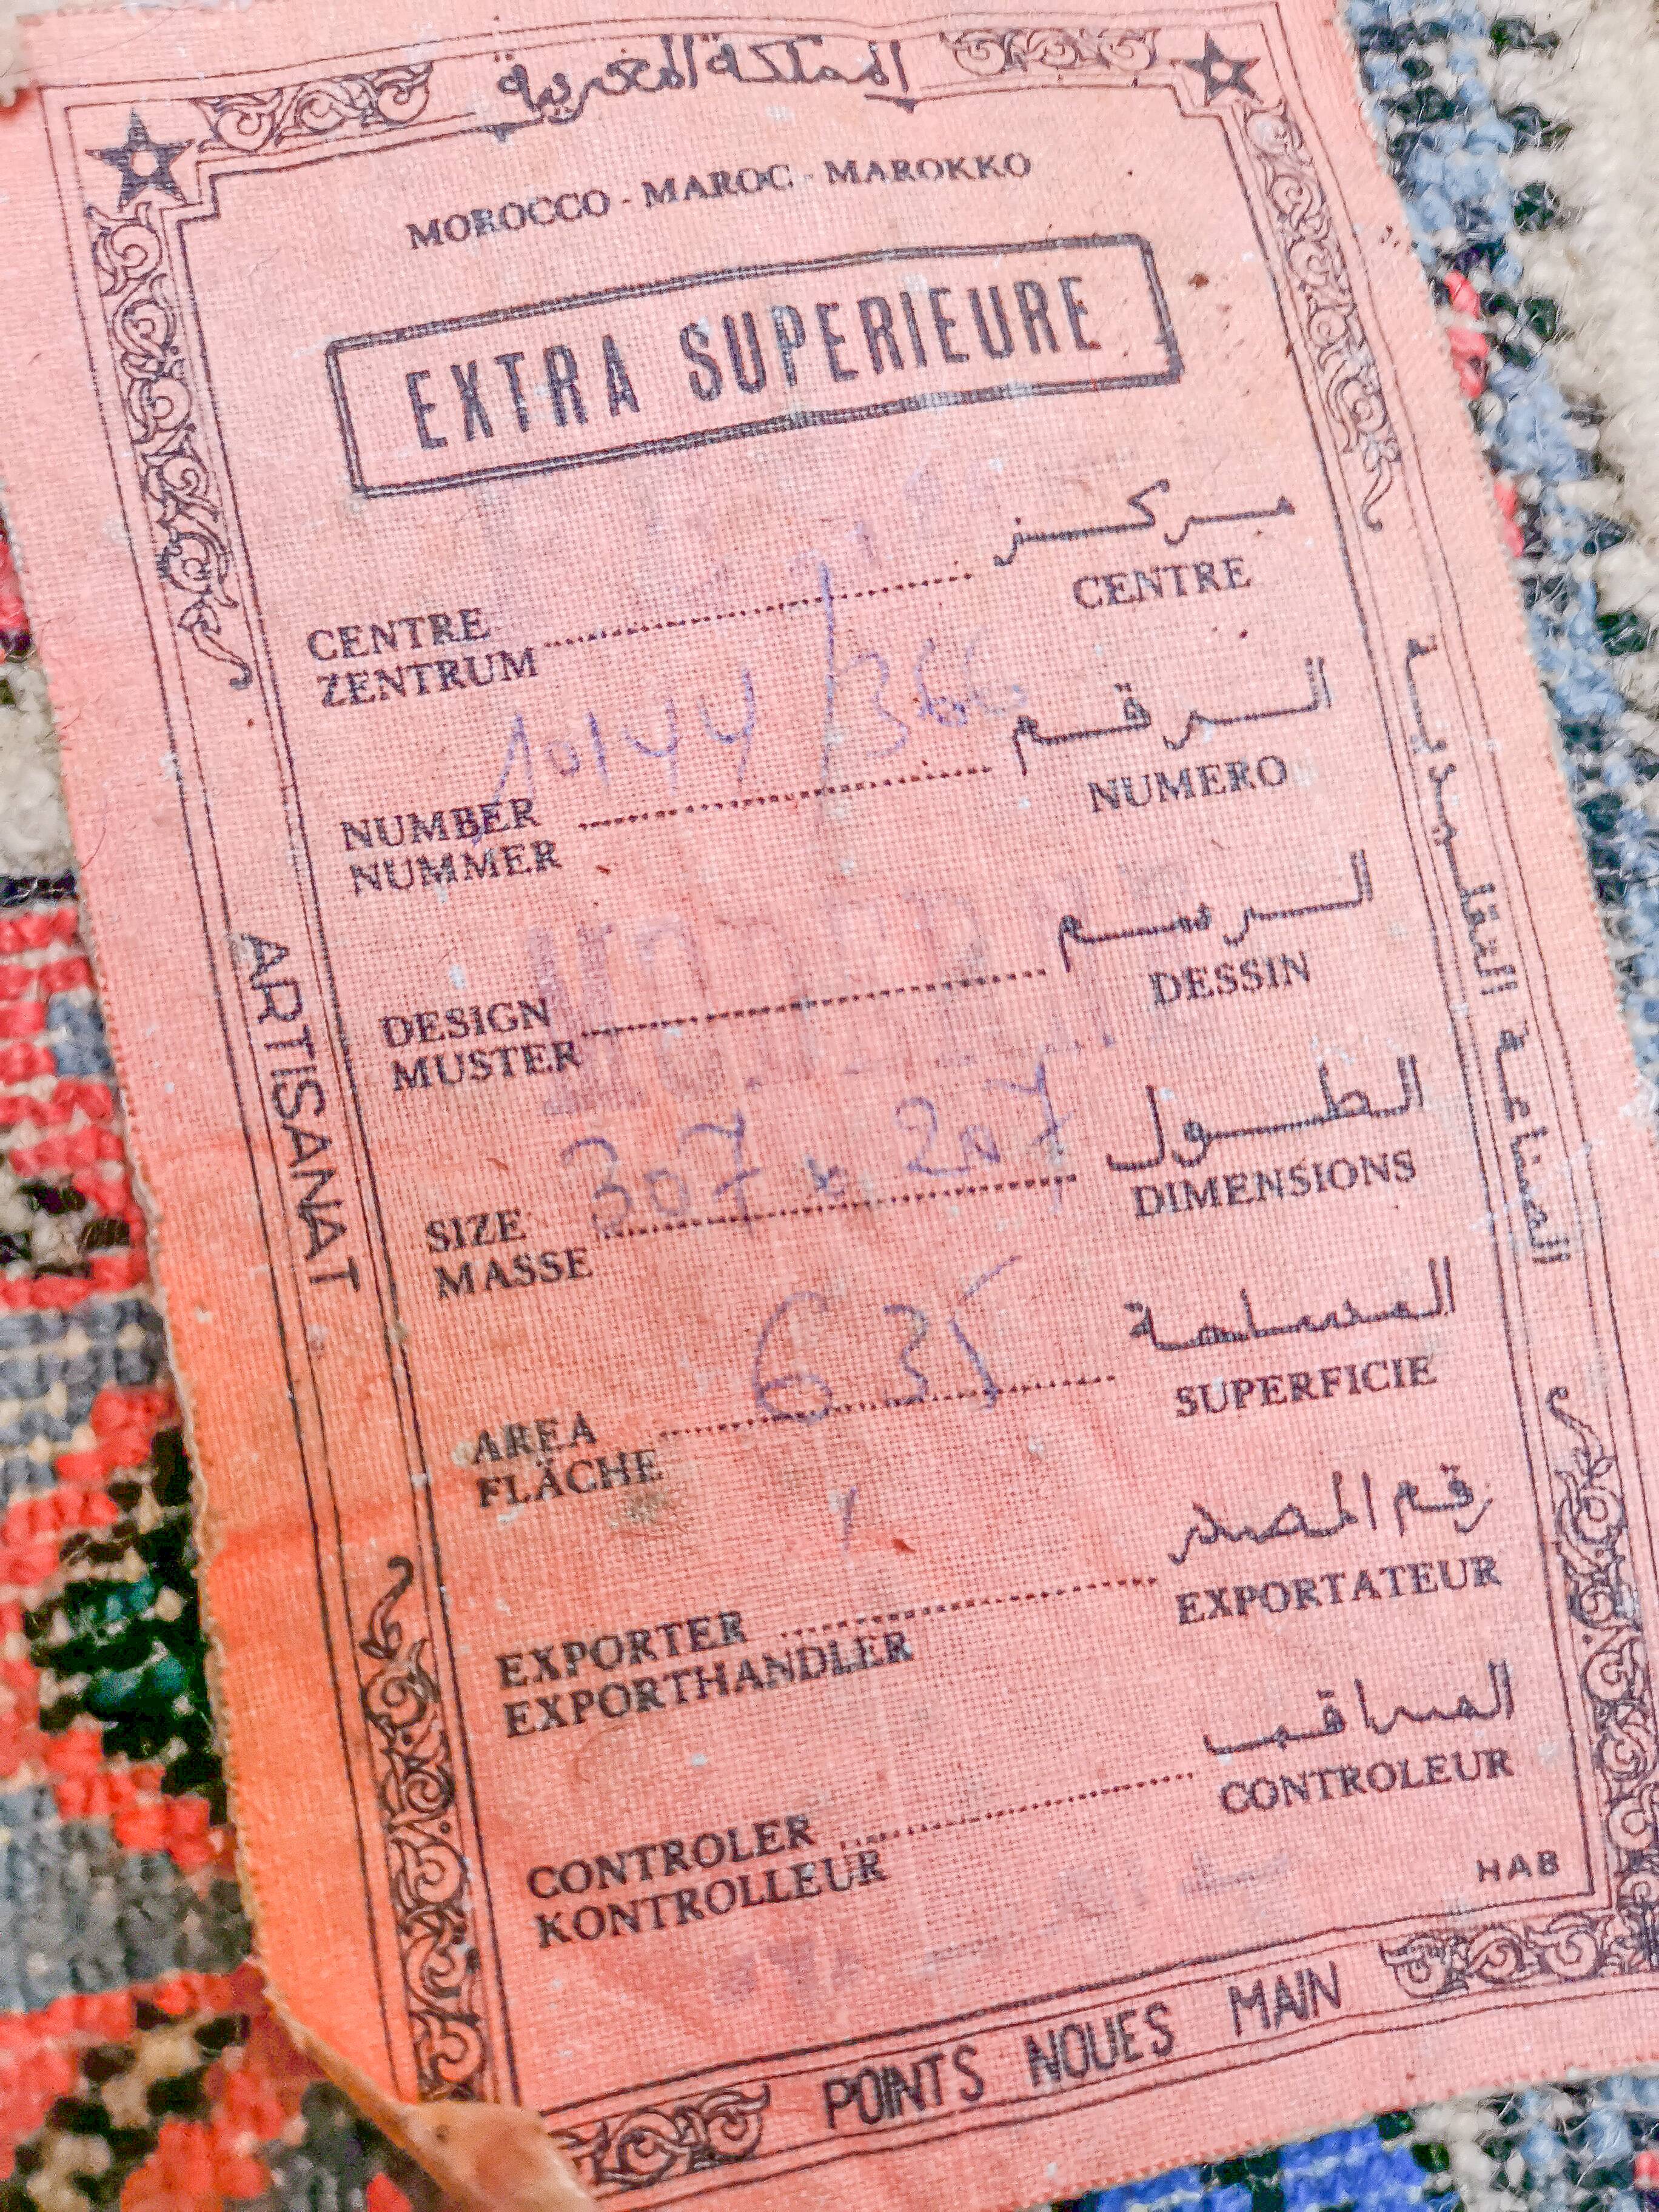 المملكة المغربية
MOROCCO - MAROC - MAROKKO
EXTRA SUPERIEURE
مركز
CENTRE
CENTRE
ZENTRUM
10144/366
الرقم
NUMBER
NUMERO
NUMMER
الرسم
DESIGN
DESSIN
MUSTER
307 x 207
الطول
SIZE
DIMENSIONS
MASSE
635
المساحة
AREA
SUPERFICIE
FLÄCHE
رقم المصدر
EXPORTER
EXPORTATEUR
EXPORTHANDLER
المراقب
CONTROLER
CONTROLEUR
KONTROLLEUR
HAB
ARTISANAT
الصناعة التقليدية
POINTS NOUES MAIN